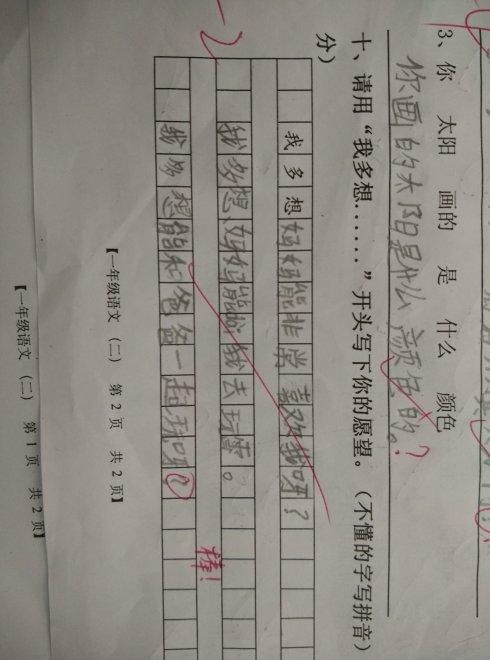 3、你 太阳 画的 是 什么 颜色
你画的太阳是什么颜色的。?
十、请用“我多想……”开头写下你的愿望。（不懂的字写拼音）
分）
我多想妈妈能非常喜欢我呀？
我多想妈妈能 我去玩 。
棒！
我多想能和爸爸一起玩呀？
【一年级语文（二） 第 2 页 共 2 页】
【一年级语文（二） 第 1 页 共 2 页】